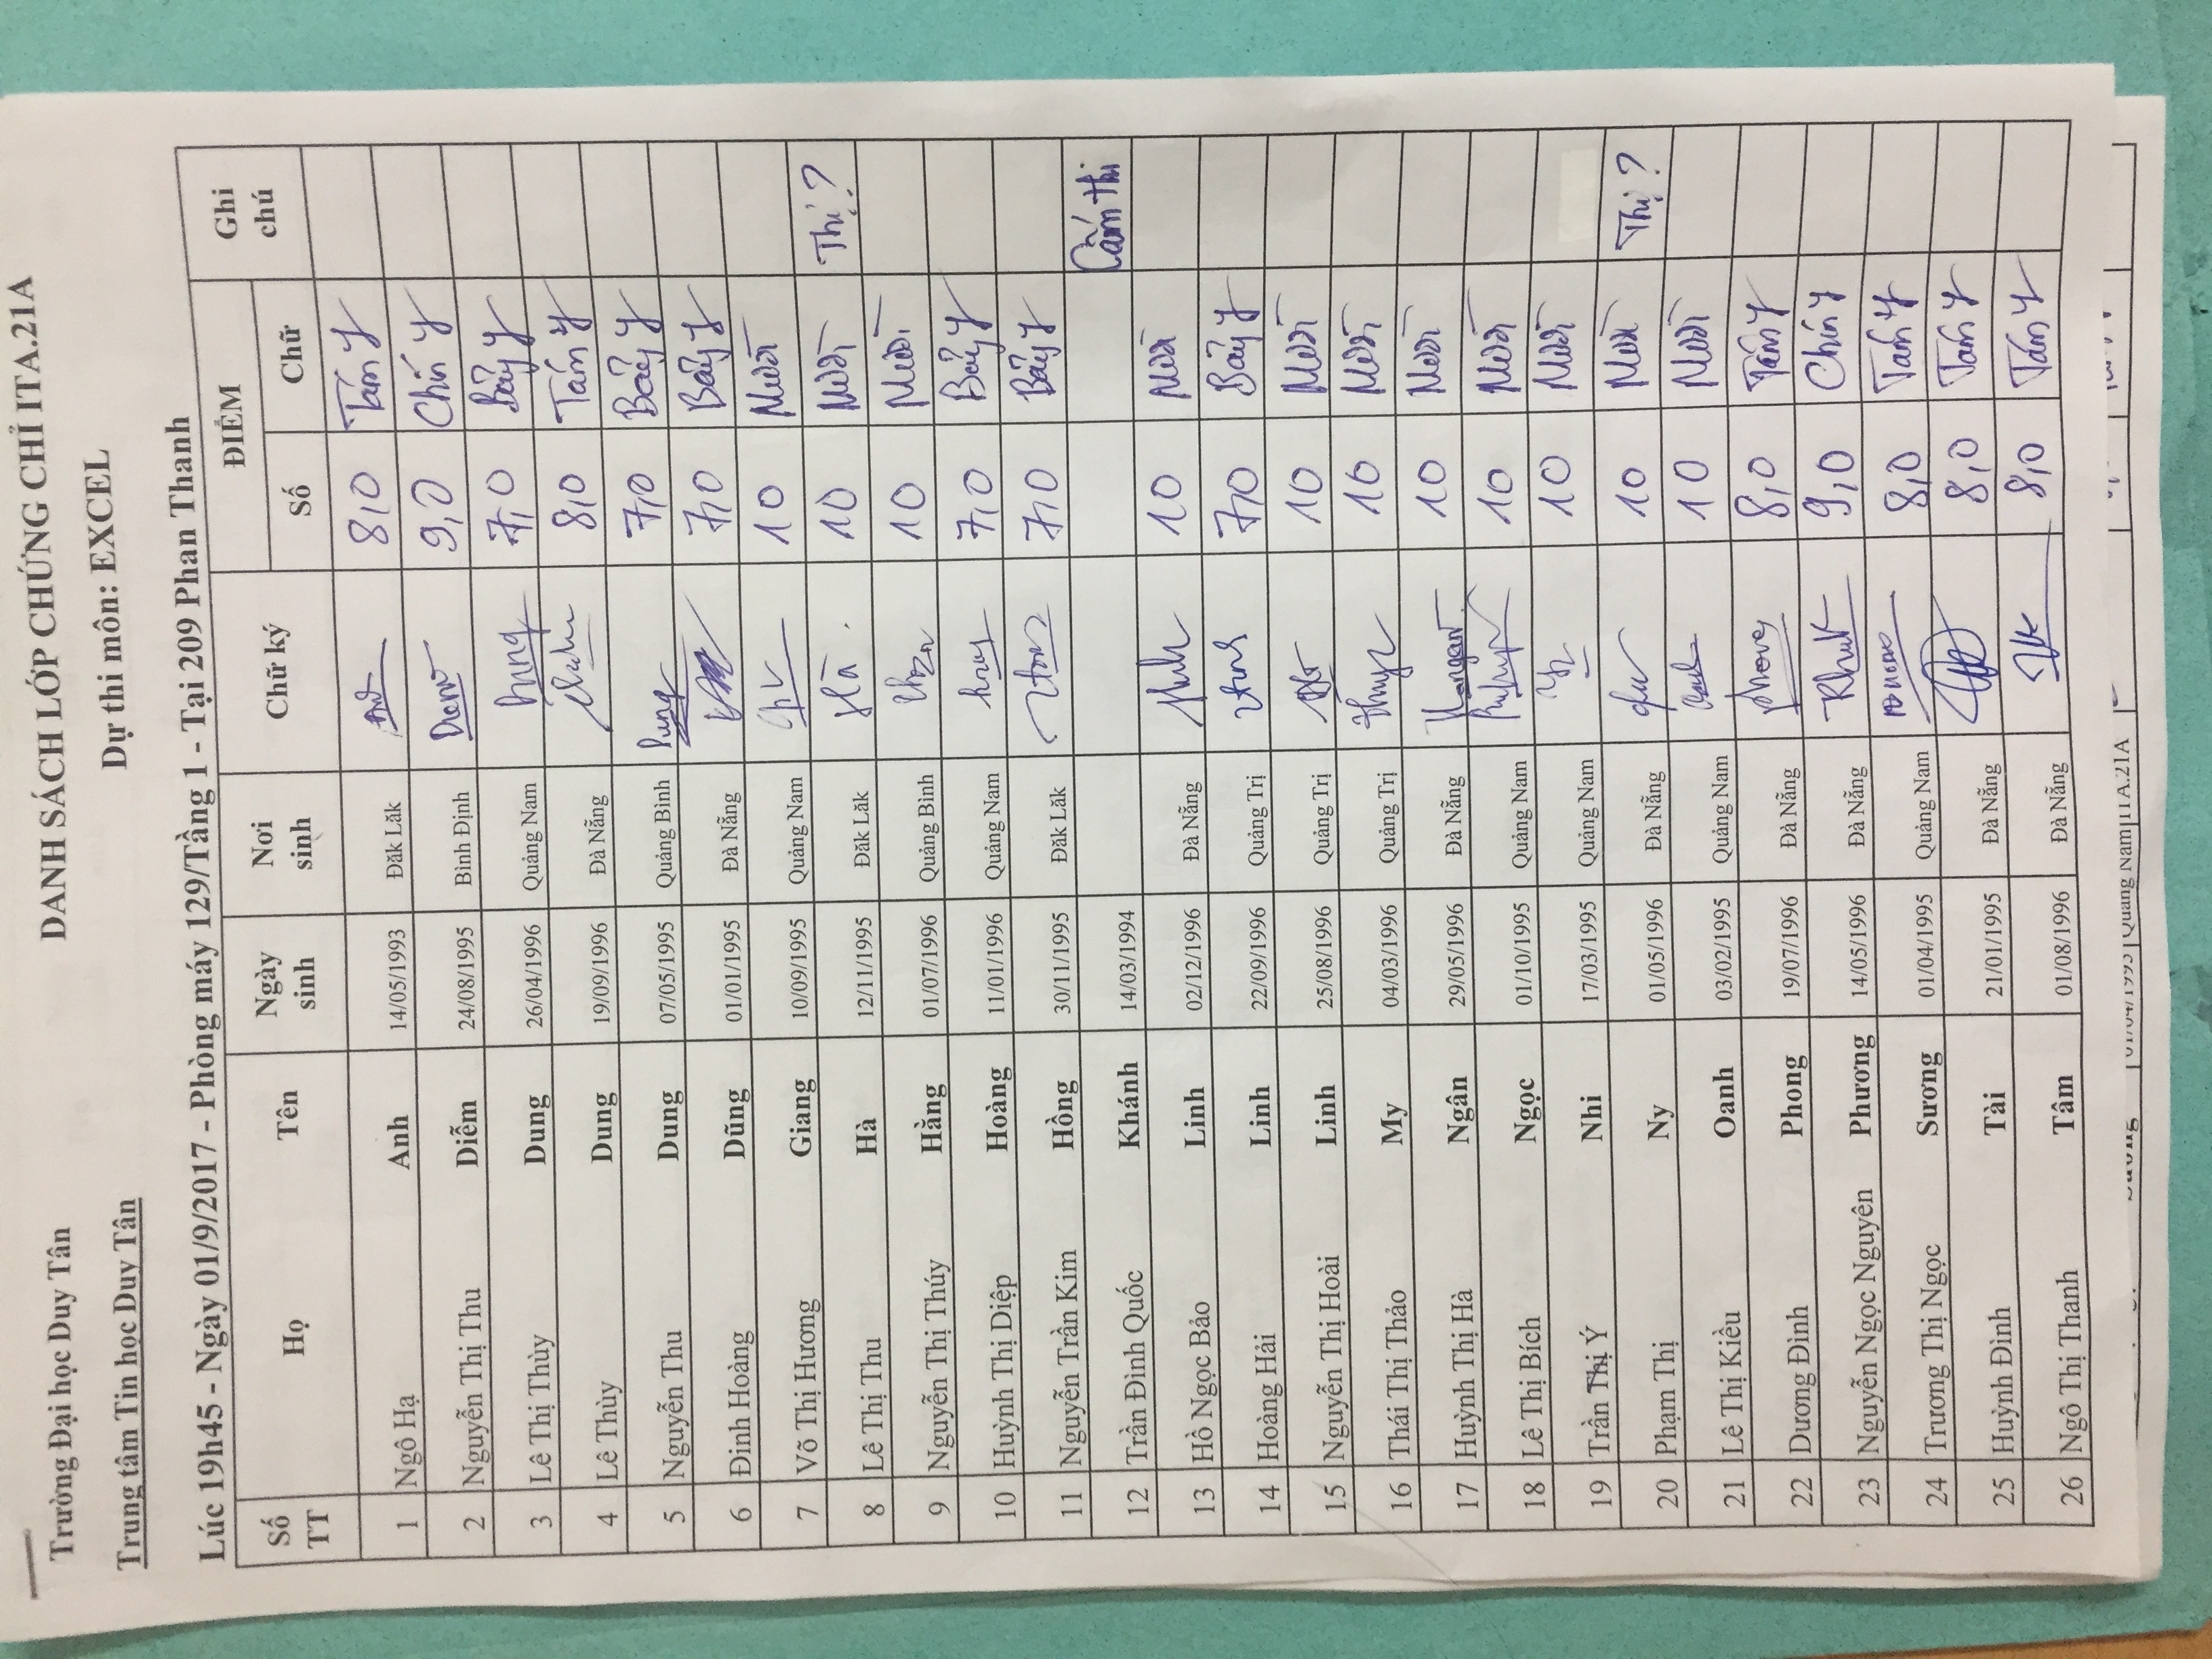 Trường Đại học Duy Tân
DANH SÁCH LỚP CHỨNG CHỈ ITA.21A
Trung tâm Tin học Duy Tân
Dự thi môn: EXCEL
Lúc 19h45 - Ngày 01/9/2017 - Phòng máy 129/Tầng 1 - Tại 209 Phan Thanh
Số TT Họ Tên Ngày sinh Nơi sinh Chữ ký ĐIỂM Ghi chú
Số Chữ
1 Ngô Hạ Anh 14/05/1993 Đăk Lăk 8,0 Tám y
2 Nguyễn Thị Thu Diễm 24/08/1995 Bình Định 9,0 Chín y
3 Lê Thị Thùy Dung 26/04/1996 Quảng Nam Dung 7,0 Bảy y
4 Lê Thùy Dung 19/09/1996 Đà Nẵng 8,0 Tám y
5 Nguyễn Thu Dung 07/05/1995 Quảng Bình Dung 7,0 Bảy y
6 Đinh Hoàng Dũng 01/01/1995 Đà Nẵng 7,0 Bảy y
7 Võ Thị Hương Giang 10/09/1995 Quảng Nam 10 Mười
8 Lê Thị Thu Hà 12/11/1995 Đăk Lăk Hà 10 Mười Thi?
9 Nguyễn Thị Thúy Hằng 01/07/1996 Quảng Bình 10 Mười
10 Huỳnh Thị Diệp Hoàng 11/01/1996 Quảng Nam 7,0 Bảy y
11 Nguyễn Trần Kim Hồng 30/11/1995 Đăk Lăk 7,0 Bảy y
12 Trần Đình Quốc Khánh 14/03/1994 Cấm thi
13 Hồ Ngọc Bảo Linh 02/12/1996 Đà Nẵng 10 Mười
14 Hoàng Hải Linh 22/09/1996 Quảng Trị 7,0 Bảy y
15 Nguyễn Thị Hoài Linh 25/08/1996 Quảng Trị 10 Mười
16 Thái Thị Thảo My 04/03/1996 Quảng Trị 10 Mười
17 Huỳnh Thị Hà Ngân 29/05/1996 Đà Nẵng 10 Mười
18 Lê Thị Bích Ngọc 01/10/1995 Quảng Nam 10 Mười
19 Trần Thị Ý Nhi 17/03/1995 Quảng Nam 10 Mười
20 Phạm Thị Ny 01/05/1996 Đà Nẵng 10 Mười Thi?
21 Lê Thị Kiều Oanh 03/02/1995 Quảng Nam 10 Mười
22 Dương Đình Phong 19/07/1996 Đà Nẵng Phong 8,0 Tám y
23 Nguyễn Ngọc Nguyên Phương 14/05/1996 Đà Nẵng 9,0 Chín y
24 Trương Thị Ngọc Sương 01/04/1995 Quảng Nam 8,0 Tám y
25 Huỳnh Đình Tài 21/01/1995 Đà Nẵng 8,0 Tám y
26 Ngô Thị Thanh Tâm 01/08/1996 Đà Nẵng 8,0 Tám y